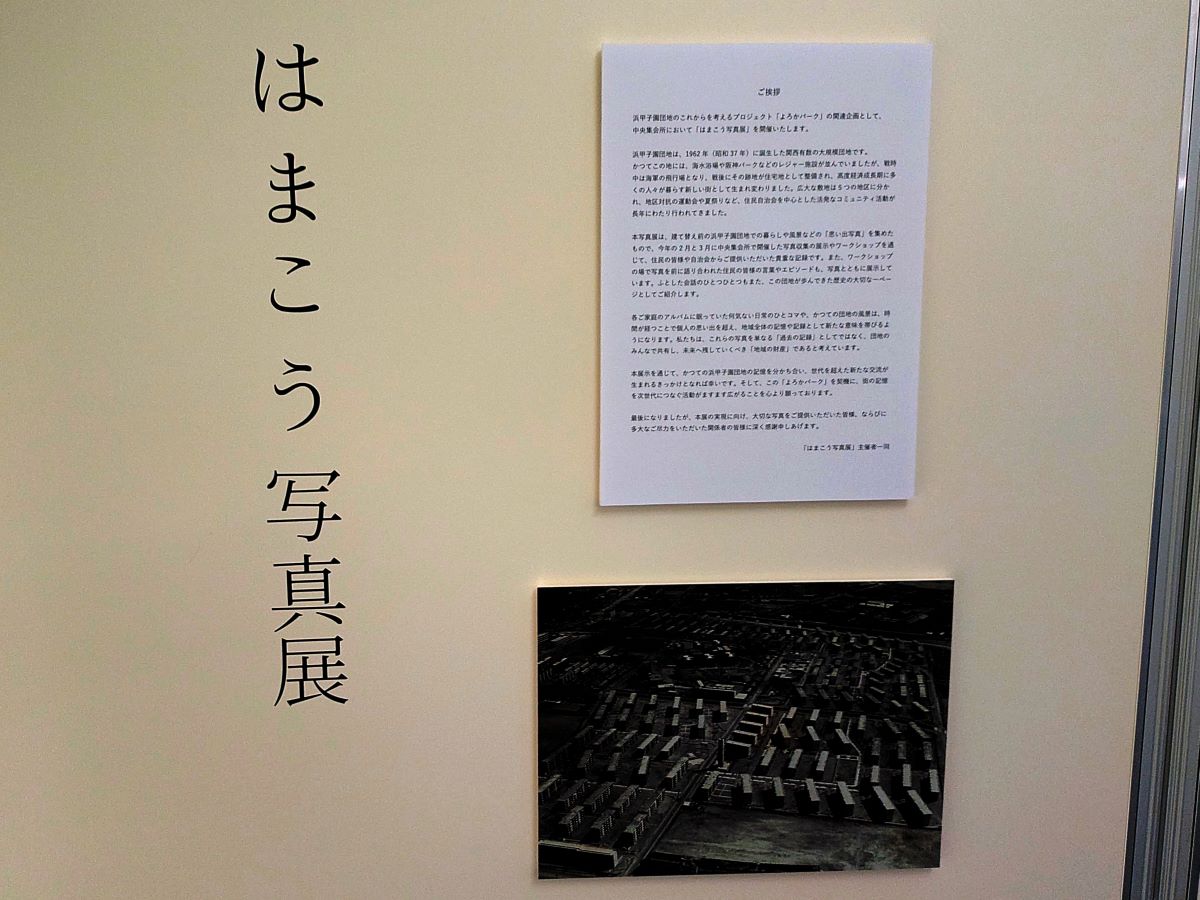 はまこう写真展
ご挨拶
浜甲子園団地のこれからを考えるプロジェクト「よろかパーク」の関連企画として、
中央集会所において「はまこう写真展」を開催いたします。
浜甲子園団地は、1962年（昭和37年）に誕生した関西有数の大規模団地です。
かつてこの地には、海水浴場や阪神パークなどのレジャー施設が並んでいましたが、戦時
中は海軍の飛行場となり、戦後にその跡地が住宅地として整備され、高度経済成長期に多
くの人々が暮らす新しい街として生まれ変わりました。広大な敷地は5つの地区に分か
れ、地区対抗の運動会や夏祭りなど、住民自治会を中心とした活発なコミュニティ活動が
長年にわたり行われてきました。
本写真展は、建て替え前の浜甲子園団地での暮らしや風景などの「思い出写真」を集めた
もので、今年の2月と3月に中央集会所で開催した写真収集の展示やワークショップを通
じて、住民の皆様や自治会からご提供いただいた貴重な記録です。また、ワークショップ
の場で写真を前に語り合われた住民の皆様の言葉やエピソードも、写真とともに展示して
います。ふとした会話のひとつひとつもまた、この団地が歩んできた歴史の大切な一ペー
ジとしてご紹介します。
各ご家庭のアルバムに眠っていた何気ない日常のひとコマや、かつての団地の風景は、時
間が経つことで個人の思い出を超え、地域全体の記憶や記録として新たな意味を帯びるよ
うになります。私たちは、これらの写真を単なる「過去の記録」としてではなく、団地の
みんなで共有し、未来へ残していくべき「地域の財産」であると考えています。
本展示を通じて、かつての浜甲子園団地の記憶を分かち合い、世代を超えた新たな交流が
生まれるきっかけとなれば幸いです。そして、この「よろかパーク」を契機に、街の記憶
を次世代につなぐ活動がますます広がることを心より願っております。
最後になりましたが、本展の実現に向け、大切な写真をご提供いただいた皆様、ならびに
多大なご尽力をいただいた関係者の皆様に深く感謝申しあげます。
「はまこう写真展」主催者一同